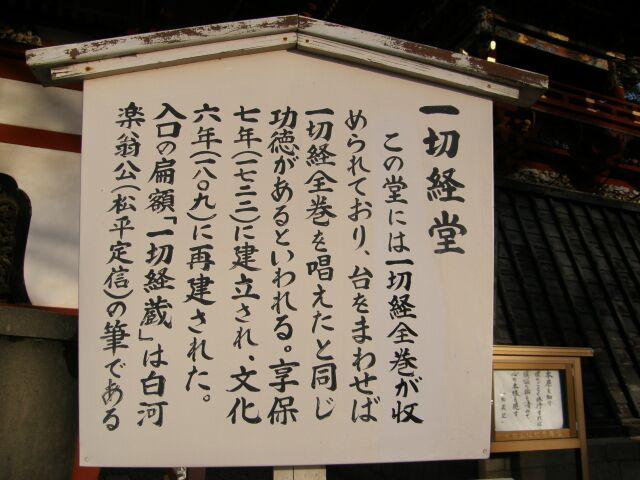 一切経堂
この堂には一切経全巻が収
められており、台をまわせば
一切経全巻を唱えたと同じ
功徳があるといわれる。享保
七年(一七二二)に建立され、文化
六年(一八〇九)に再建された。
入口の扁額「一切経蔵」は白河
楽翁公(松平定信)の筆である